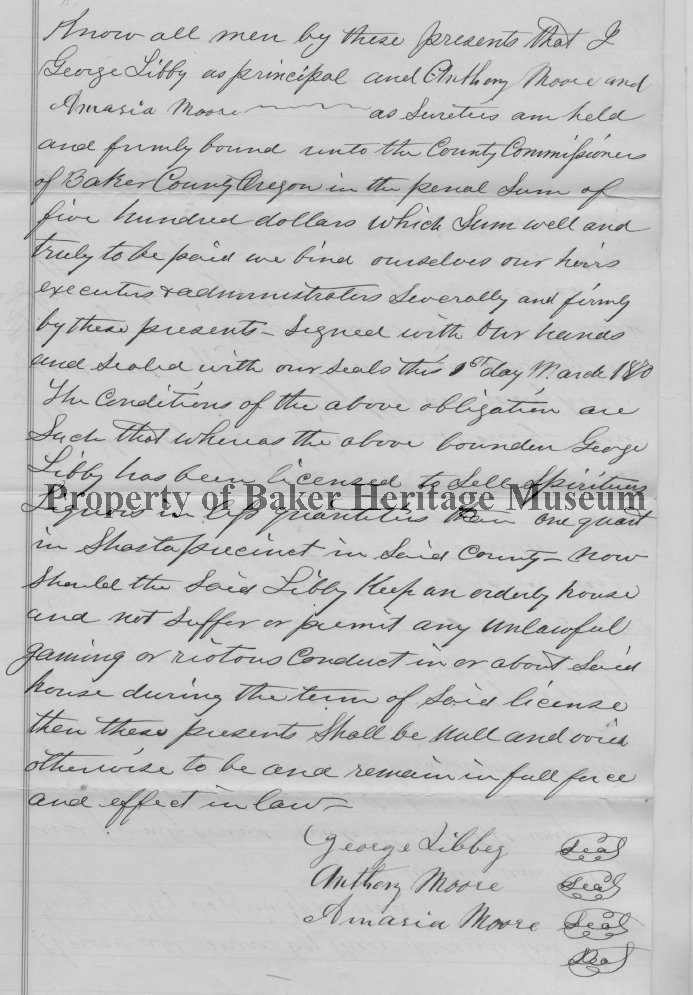 Know all men by these presents that I
George Libby as principal and Anthony Moore and
Amasia Moore as Sureties am held
and firmly bound unto the County Commissioners
of Baker County Oregon in the penal Sum of
five hundred dollars which Sum well and
truly to be paid we bind ourselves our heirs
executers & administraters Severally and firmly
by these presents - Signed with Our hands
and sealed with our seals this 1st day March 1870
The Conditions of the above obligation are
Such that whereas the above bounden George
Libby has been licensed to Sell Spiritous
Property of Baker Heritage Museum
Liquors in less quantities than one quart
in Shasta precinct in Said County - now
Should the Said Libby Keep an orderly house
and not Suffer or permit any unlawful
gaming or riotous Conduct in or about Said
house during the term of Said license
then these presents Shall be Null and void
otherwise to be and remain in full force
and effect in law -
George Libbey Seal
Anthony Moore Seal
Amasia Moore Seal
Seal